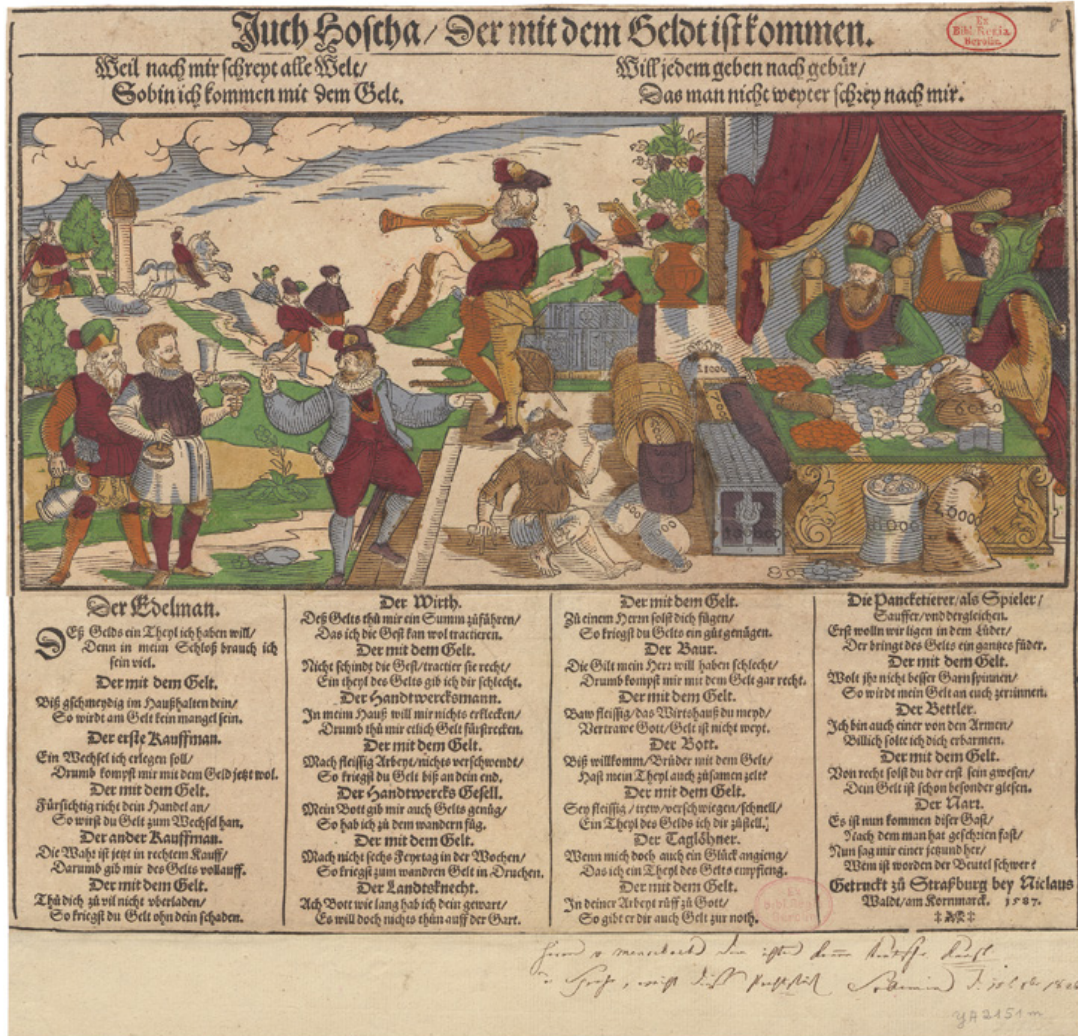 Juch Hoscha/ Der mit dem Geldt ist kommen.
Ex
Bibl. Regia
Berolin.
Weil nach mir schreyt alle Welt/
So bin ich kommen mit dem Gelt.
Will jedem geben nach gebür/
Das man nicht weyter schrey nach mir.
21000
6000
100000
11000
26000
Der Edelman.
DEß Gelds ein Theyl ich haben will/
Denn in meim Schloß brauch ich
sein viel.
Der mit dem Gelt.
Biß gschmeydig im Haußhalten dein/
So wirdt am Gelt kein mangel sein.
Der erste Kauffman.
Ein Wechsel ich erlegen soll/
Drumb kompst mir mit dem Geld jetzt wol.
Der mit dem Gelt.
Fürsichtig richt dein Handel an/
So wirst du Gelt zum Wechsel han.
Der ander Kauffman.
Die Wahr ist jetzt in rechtem Kauff/
Darumb gib mir des Gelts vollauff.
Der mit dem Gelt.
Thu dich zu vil nicht vberladen/
So kriegst du Gelt ohn dein schaden.
Der Wirth.
Deß Gelts thu mir ein Summ zuführen/
Das ich die Gest kan wol tractieren.
Der mit dem Gelt.
Nicht schindt die Gest/tractier sie recht/
Ein theyl des Gelts gib ich dir schlecht.
Der Handtwercksmann.
In meim Hauß will mir nichts erklecken/
Drumb thu mir etlich Gelt fürstrecken.
Der mit dem Gelt.
Mach fleissig Arbeyt/nichts verschwendt/
So kriegst du Gelt biß an dein end.
Der Handtwercks Gesell.
Mein Bott gib mir auch Gelts genüg/
So hab ich zu dem wandern füg.
Der mit dem Gelt.
Mach nicht sechs Feyrtag in der Wochen/
So kriegst zum wandren Gelt in Druchen.
Der Landtsknecht.
Ach Bott wie lang hab ich dein gewart/
Es will doch nichts thun auff der Gart.
Der mit dem Gelt.
Zu einem Herrn solst dich fügen/
So kriegst du Gelts ein gut genügen.
Der Baur.
Die Gilt mein Herz will haben schlecht/
Drumb kompst mir mit dem Gelt gar recht.
Der mit dem Gelt.
Baw fleissig/das Wirtshauß du meyd/
Vertrawe Gott/Gelt ist nicht weyt.
Der Bott.
Biß willkomm/Bruder mit dem Gelt/
Hast mein Theyl auch zusamen zelt?
Der mit dem Gelt.
Sey fleissig/trew/verschwiegen/schnell/
Ein Theyl des Gelds ich dir züstell.
Der Taglöhner.
Wenn mich doch auch ein Glück angieng/
Das ich ein Theyl des Gelts empfieng.
Der mit dem Gelt.
In deiner Arbeyt rüff zu Gott/
So gibt er dir auch Gelt zur noth.
Die Pancketierer/als Spieler/
Sauffer/vnd dergleichen.
Erst wolln wir ligen in dem Luder/
Der bringt des Gelts ein gantzes fuder.
Der mit dem Gelt.
Wolt jhr nicht besser Garn spinnen/
So wirdt mein Gelt an euch zerrünnen.
Der Bettler.
Ich bin auch einer von den Armen/
Billich solte ich dich erbarmen.
Der mit dem Gelt.
Von recht solst du der erst sein gwesen/
Dein Gelt ist schon besonder glesen.
Der Narr.
Es ist nun kommen diser Gast/
Nach dem man hat geschrien fast/
Nun sag mir einer jetzund her/
Wem ist worden der Beutel schwer?
Getruckt zu Straßburg bey Niclaus
Waldt/am Kornmarck. 1587.
Ex
Bibl. Regia
Berolin.
YA 2151 m